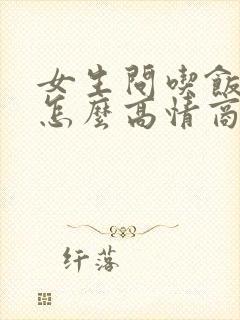 女生問喫飯
怎麼高情商
纤落